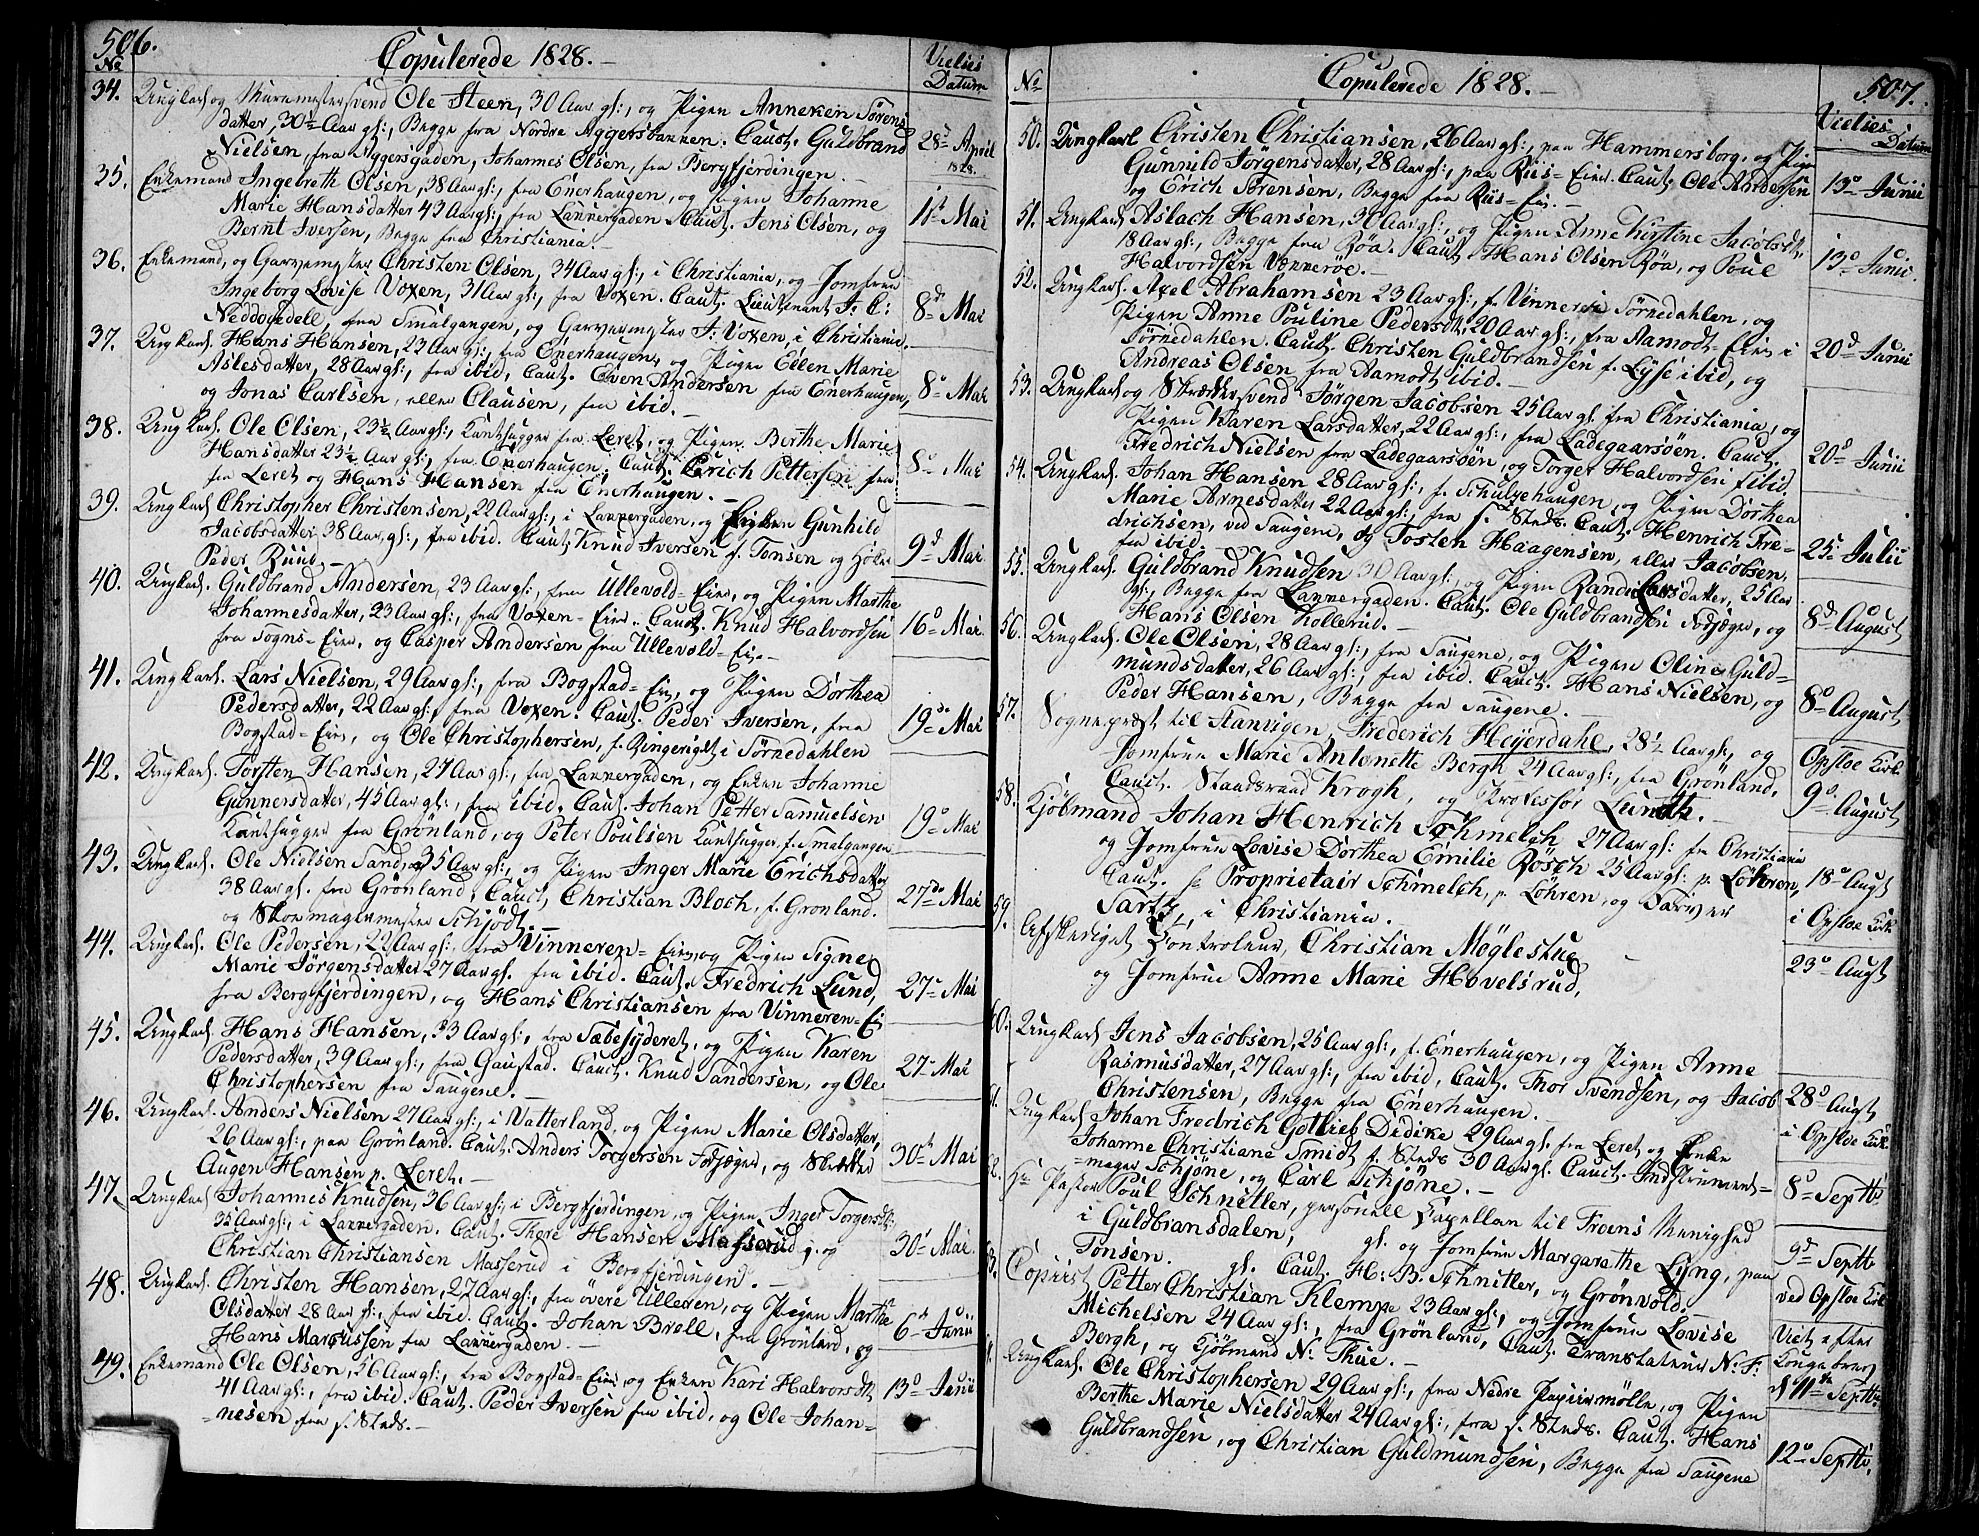 506.
Copulerede 1828.
No
Vielses Datum
34. Ungkarl og Muurmestersvend Ole Steen, 30 Aar gl:, og Pigen Anneken Sørens
datter, 30½ Aar gl:, Begge fra Nordre Aggersbakken. Caut. Guldbrand
Nielsen, fra Aggersgaden, Johannes Olsen, fra Bergfjerdingen.
28de April 1828.
35. Enkemand Ingebreth Olsen, 38 Aar gl:, fra Enerhaugen, og Pigen Johanne
Marie Hansdatter 43 Aar gl:, fra Lakkergaden. Caut. Jens Olsen, og
Bernt Iversen, Begge fra Christiania.
1st Mai
36. Enkemand, og Garvemester Christen Olsen, 34 Aar gl:, i Christiania, og Jomfrue
Ingeborg Lovise Voxen, 31 Aar gl:, fra Voxen. Caut. Lieutenant J: C:
Neddovedell, fra Smalgangen, og Garvermester J: Voxen, i Christiania.
8de Mai
37. Ungkarl. Hans Hansen, 23 Aar gl:, fra Enerhaugen, og Pigen Ellen Marie
Aslesdatter, 28 Aar gl:, fra ibid. Caut. Even Andersen fra Enerhaugen,
og Jonas Carlsen, eller Clausen, fra ibid.
8de Mai
38. Ungkarl. Ole Olsen, 23½ Aar gl:, Kanthugger fra Leret, og Pigen Berthe Marie
Hansdatter 23½ Aar gl:, fra Enerhaugen. Caut. Erich Pettersen fra
fra Leret og Hans Hansen fra Enerhaugen.
8de Mai
39. Ungkarl Christopher Christensen, 22 Aar gl:, i Lakkergaden, og Pigen Gunhild
Jacobsdatter, 38 Aar gl:, fra ibid. Caut. Knud Iversen f. Tonsen og Høker
Peder Ruud.
9d Mai
40. Ungkarl. Guldbrand Andersen, 23 Aar gl:, fra Ullevold-Eier, og Pigen Marthe
Johannesdatter, 23 Aar gl:, fra Voxen-Eier. Caut. Knud Halvordsen
fra Sogns-Eier, og Casper Andersen fra Ullevold-Ei.
16de Mai
41. Ungkarl. Lars Nielsen, 29 Aar gl:, fra Bogstad-Eier, og Pigen Dorthea
Pedersdatter, 22 Aar gl:, fra Voxen. Caut. Peder Iversen, fra
Bogstad-Eier, og Ole Christophersen, f. Ringeriget i Sørkedahlen
19de Mai
42. Ungkarl. Torsten Hansen, 27 Aar gl:, fra Lakkergaden, og Enken Johanne
Gunnersdatter, 45 Aar gl:, fra ibid. Caut. Johan Petter Samuelsen
Kanthugger fra Grønland, og Peter Poulsen Kanthugger, fra Smalgangen
19de Mai
43. Ungkarl. Ole Nielsen Sand, 35 Aar gl:, og Pigen Inger Marie Erichsdatter
38 Aar gl. fra Grønland, Caut. Christian Bloch, f. Grønland.
og Skomagermester Schjødt.
27de Mai
44. Ungkarl. Ole Pedersen, 22 Aar gl:, fra Vinneren-Eier, og Pigen Signe
Marie Jørgensdatter 27 Aar gl. fra ibid. Caut. Fredrich Lund,
fra Bergfjerdingen, og Hans Christiansen fra Vinneren-Ei
27de Mai
45. Ungkarl Hans Hansen, 33 Aar gl:, fra Sæbesyderet, og Pigen Karen
Pedersdatter, 39 Aar gl:, fra Gaustad. Caut. Knud Sandersen, og Ole
Christophersen fra Saugene.
27de Mai
46. Ungkarl. Anders Nielsen 27 Aar gl:, i Vatterland, og Pigen Marie Olsdatter,
26 Aar gl:, paa Grønland. Caut. Anders Torgersen Fodjæger, og Skredder
Augen Hansen p. Leret.
30te Mai
47. Ungkarl Johannes Knudsen, 36 Aar gl: i Bergfjerdingen, og Pigen Inger Torgersdt:,
35 Aar gl:, i Lakkergaden. Caut. Thore Hansen Masserud, og
Christian Christiansen Masserud i Bergfjerdingen.
30te Mai
48. Ungkarl. Christen Hansen, 27 Aar gl:, fra øvere Ulleren, og Pigen Marthe
Olsdatter 28 Aar gl:, fra ibid. Caut. Johan Brøll, fra Grønland, og
Hans Marcussen fra Lakkergaden.
6te Junii
49. Enkemand Ole Olsen, 56 Aar gl:, fra Bogstad-Eier, og Enken Kari Halvorsdt.
41 Aar gl:, fra ibid. Caut. Peder Iversen fra ibid, og Ole Johan-
nesen fra s. Steds.
13de Junii
Copulerede 1828.
507.
No
Vielses Datum
50. Ungkarl Christen Christiansen, 26 Aar gl:, paa Hammersborg, og Pigen
Gunnild Jørgensdatter, 28 Aar gl:, paa Riis-Eier. Caut. Ole Andersen
og Erich Sørensen, Begge fra Riis-Eier.
13de Junii
51. Ungkarl Aslach Hansen, 30 Aar gl:, og Pigen Anne Kirstine Jacobsdt.
18 Aar gl:, Begge fra Røa. Caut. Hans Olsen Røa, og Poul
Halvordsen Vækkerøe.
13de Junii
52. Ungkarl. Axel Abrahamsen 23 Aar gl:, f. Vinneren Sørkedahlen, og
Pigen Anne Pouline Pedersdt. 20 Aar gl:, fra Aamodt-Eier, i
Sørkedahlen. Caut. Christen Guldbrandsen f. Lysse ibid, og
Andreas Olsen fra Aamodt, ibid.
20de Junii
53. Ungkarl og Skreddersvend Jørgen Jacobsen 25 Aar gl. fra Christiania, og
Pigen Karen Larsdatter, 22 Aar gl:, fra Ladegaarsøen. Caut.
Fredrich Nielsen fra Ladegaarsøen, og Torger Halvordsen f. ibid.
20de Junii
54. Ungkarl. Johan Hansen 28 Aar gl:, f. Schultzehaugen, og Pigen Dorthea
Marie Arnesdatter 22 Aar gl:, fra s. Steds. Caut. Henrich Fre-
drichsen, ved Saugene, og Tosten Haagensen, eller Jacobsen,
fra ibid.
25de Julii
55. Ungkarl. Guldbrand Knudsen 30 Aar gl:, og Pigen Randi Larsdatter, 25 Aar
gl:, Begge fra Lakkergaden. Caut. Ole Guldbrandsen Fodjæger, og
Hans Olsen Kollerud.
8de August
56. Ungkarl. Ole Olsen, 28 Aar gl:, fra Saugene, og Pigen Oline Guld-
mundsdatter, 26 Aar gl:, fra ibid. Caut. Hans Nielsen, og
Peder Hansen, Begge fra Saugene.
8de August
57. Sognepræst til Stavigen, Frederich Heyerdahl, 28½ Aar gl:, og
Jomfrue Marie Antonette Bergh 24 Aar gl:, fra Grønland,
Caut. Statsraad Krogh, og Professor Lundh.
Opsloe Kirk.
9de August
58. Kjøbmand Johan Henrich Schmelch, 27 Aar gl: fra Christiania
og Jomfrue Lovise Dorthea Emilie Rosch 25 Aar gl: p. Løhren,
Caut. Hr Proprietair Schmelch, p. Løhren, og Farver
Sartz, i Christiania.
18de Augt
i Opsloe Kirk
59. Afskediget Controleur, Christian Møglestue
og Jomfrue Anne Marie Hovelsrud,
23de Augt
60. Ungkarl Jens Jacobsen, 25 Aar gl:, f. Enerhaugen, og Pigen Anne
Rasmusdatter, 27 Aar gl:, fra ibid, Caut. Thor Svendsen, og Jacob
Christensen, Begge fra Enerhaugen.
28de Augt
i Opsloe Kirk.
61. Ungkarl Johan Fredrich Gotlieb Didike 29 Aar gl. fra Leret og Enke
Johanne Christiane Smidt f. Steds 30 Aar gl: Caut. Indstrument-
mager Schjøne, og Carl Schjøne.
8de Septb
62. Hr Pastor Poul Schnitler, personell Capellan til Froens Menighed
i Guldbransdalen, gl. og Jomfrue Margarethe Lyng, paa
Tonsen. gl. Caut. H: B: Schnitler, og Grønvold.
9de Septb
ved Opsloe Kirk
63. Copiist Petter Christian Klempe 23 Aar gl:, og Jomfrue Lovise
Michelsen 24 Aar gl:, fra Grønland, Caut. Translateur N: F:
Bergh, og Kjøbmand N: Thue.
Viet efter
Kongebrev
d 11te Septb
Ungkarl. Ole Christophersen 29 Aar gl:, fra Nedre Papiirmølle, og Pigen
Berthe Marie Nielsdatter 24 Aar gl:, fra s. Steds. Caut. Hans
Guldbrandsen, og Christian Guldmundsen, Begge fra Saugene
12te Septb,